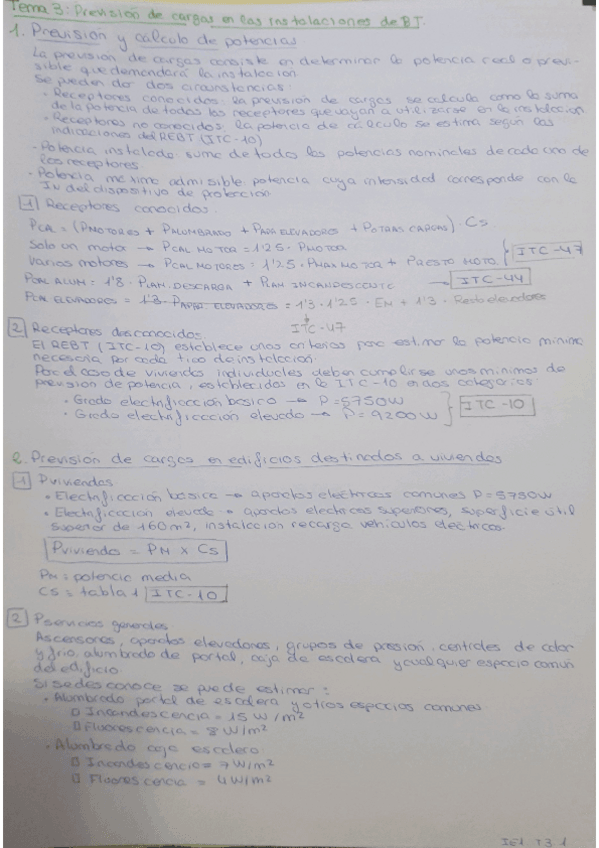 Tema 3: Previsión de cargas en las instalaciones de BT.
1. Previsión y cálculo de potencias
La previsión de cargas consiste en determinar la potencia real o previ-
sible que demandará la instalación.
Se pueden dar dos circunstancias:
• Receptores conocidos: la previsión de cargas se calcula como la suma
de la potencia de todos los receptores que vayan a utilizarse en la instalación
• Receptores no conocidos: la potencia de cálculo se estima según las
indicaciones del REBT (ITC-10)
- Potencia instalada: suma de todas las potencias nominales de cada uno de
los receptores.
- Potencia máxima admisible: potencia cuya intensidad corresponde con la
In del dispositivo de protección
1 Receptores conocidos.
PCAL = (PMOTORES + PALUMBRADO + PAPA ELEVADORES + POTRAS CARGAS) · Cs
Solo un motor → PCAL MOTOR = 1'25 · PMOTOR
Varios motores → PCAL MOTORES = 1'25 · PMAX MOTOR + PRESTO MOTOR } ITC-47
PCAL ALUM = 1'8 · PLAM. DESCARGA + PLAM INCANDESCENTE ← ITC-44
PCAL ELEVADORES = 1'3 · PAPAR. ELEVADORES = 1'3 · 1'25 · EM + 1'3 · Resto elevadores
ITC-47
2 Receptores desconocidos:
El REBT (ITC-10) establece unos criterios para estimar la potencia mínima
necesaria por cada tipo de instalación.
Por el caso de viviendas individuales deben cumplirse unos mínimos de
previsión de potencia, establecidos en la ITC-10 en dos categorías:
• Grado electrificación básico → P=5750W
• Grado electrificación elevado → P=9200W } ITC-10
2. Previsión de cargas en edificios destinados a viviendas
1 Pviviendas
• Electrificación básica → aparatos eléctricos comunes P=5750W
• Electrificación elevada → aparatos eléctricos superiores, superficie útil
superior de 160m², instalación recarga vehículos eléctricos.
Pvivienda = PM x Cs
PM = potencia media
CS = tabla 1 ITC-10
2 Pservicios generales
Ascensores, aparatos elevadores, grupos de presión, centrales de calor
y frío, alumbrado de portal, caja de escalera y cualquier espacio común
del edificio.
Si se desconoce se puede estimar:
• Alumbrado portal de escalera y otros espacios comunes
▯ Incandescencia = 15 W/m²
▯ Fluorescencia = 8 W/m²
• Alumbrado caja escalera:
▯ Incandescencia = 7 W/m²
▯ Fluorescencia = 4 W/m²
IE1 T3 1